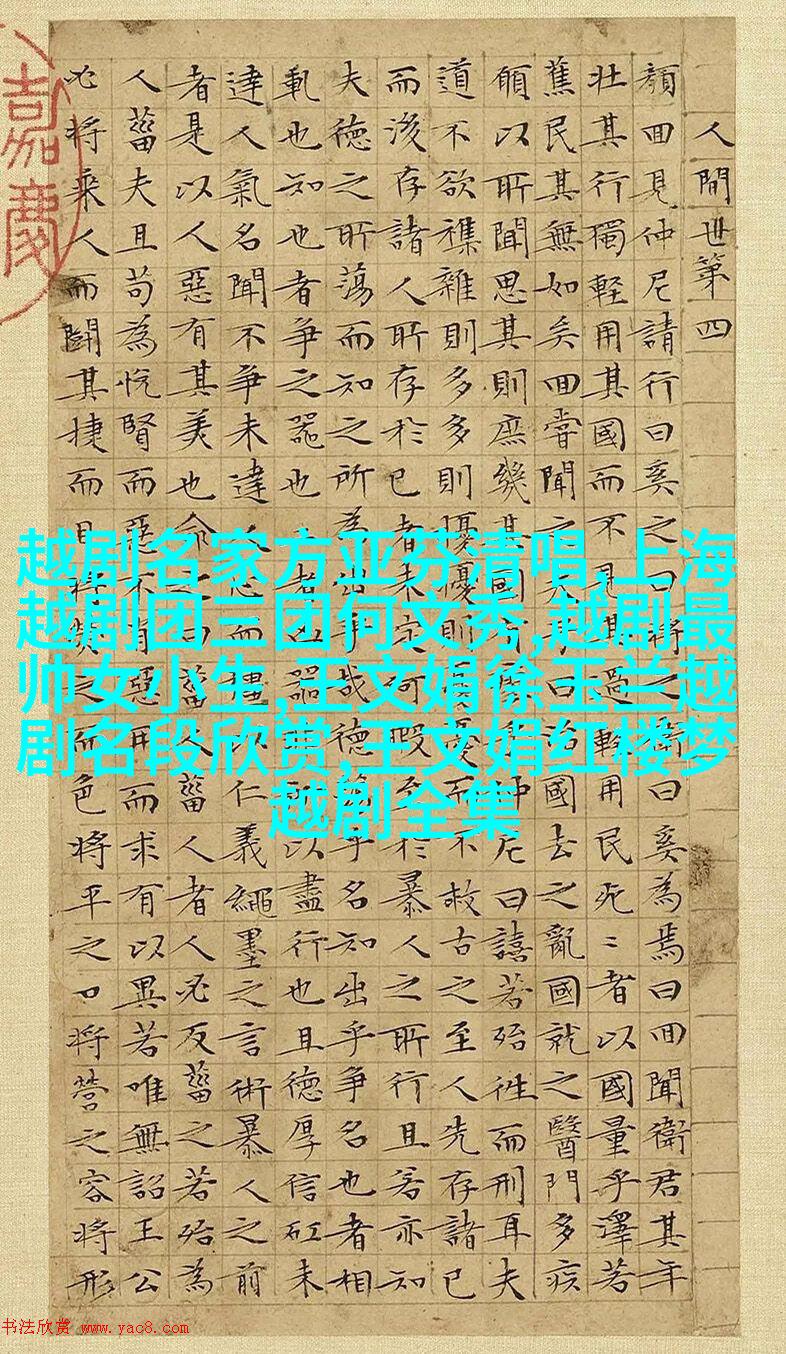 人間世第四
顏囬見仲尼請行曰奚之曰將之衛曰奚為焉曰囬聞衛君其年
壯其行獨輕用其國而不見其過輕用民死〻者以國量乎澤若
蕉民其無如矣囬嘗聞之夫子曰治國去之亂國就之醫門多疾
願以所聞思其則庶幾其國有瘳乎仲尼曰譆若殆往而刑耳夫
道不欲襍雜則多多則擾擾則憂憂而不救古之至人先存諸已
而後存諸人所存於已者未定何暇至於暴人之所行且若亦知
夫德之所蕩而知之所為出乎哉德蕩乎名知出乎爭名也者相
軋也知也者爭之器也二者凶器非所以盡行也且德厚信矼未
達人氣名聞不爭未達人心而彊以仁義繩墨之言術暴人之前
者是以人惡有其美也命之曰菑人菑人者人必反菑之若殆為
人菑夫且苟為悅賢而惡不肖惡用而求有以異若唯無詔王公
必將乘人而鬭其捷而目將熒之而色將平之口將營之容將形
嘉慶
越剧名家方亚芬清唱,上海
越剧团三团何文秀,越剧最
帅女小生,王文娟徐玉兰越
剧名段欣赏,王文娟红楼梦
越剧全集
书法欣赏 www.yac8.com